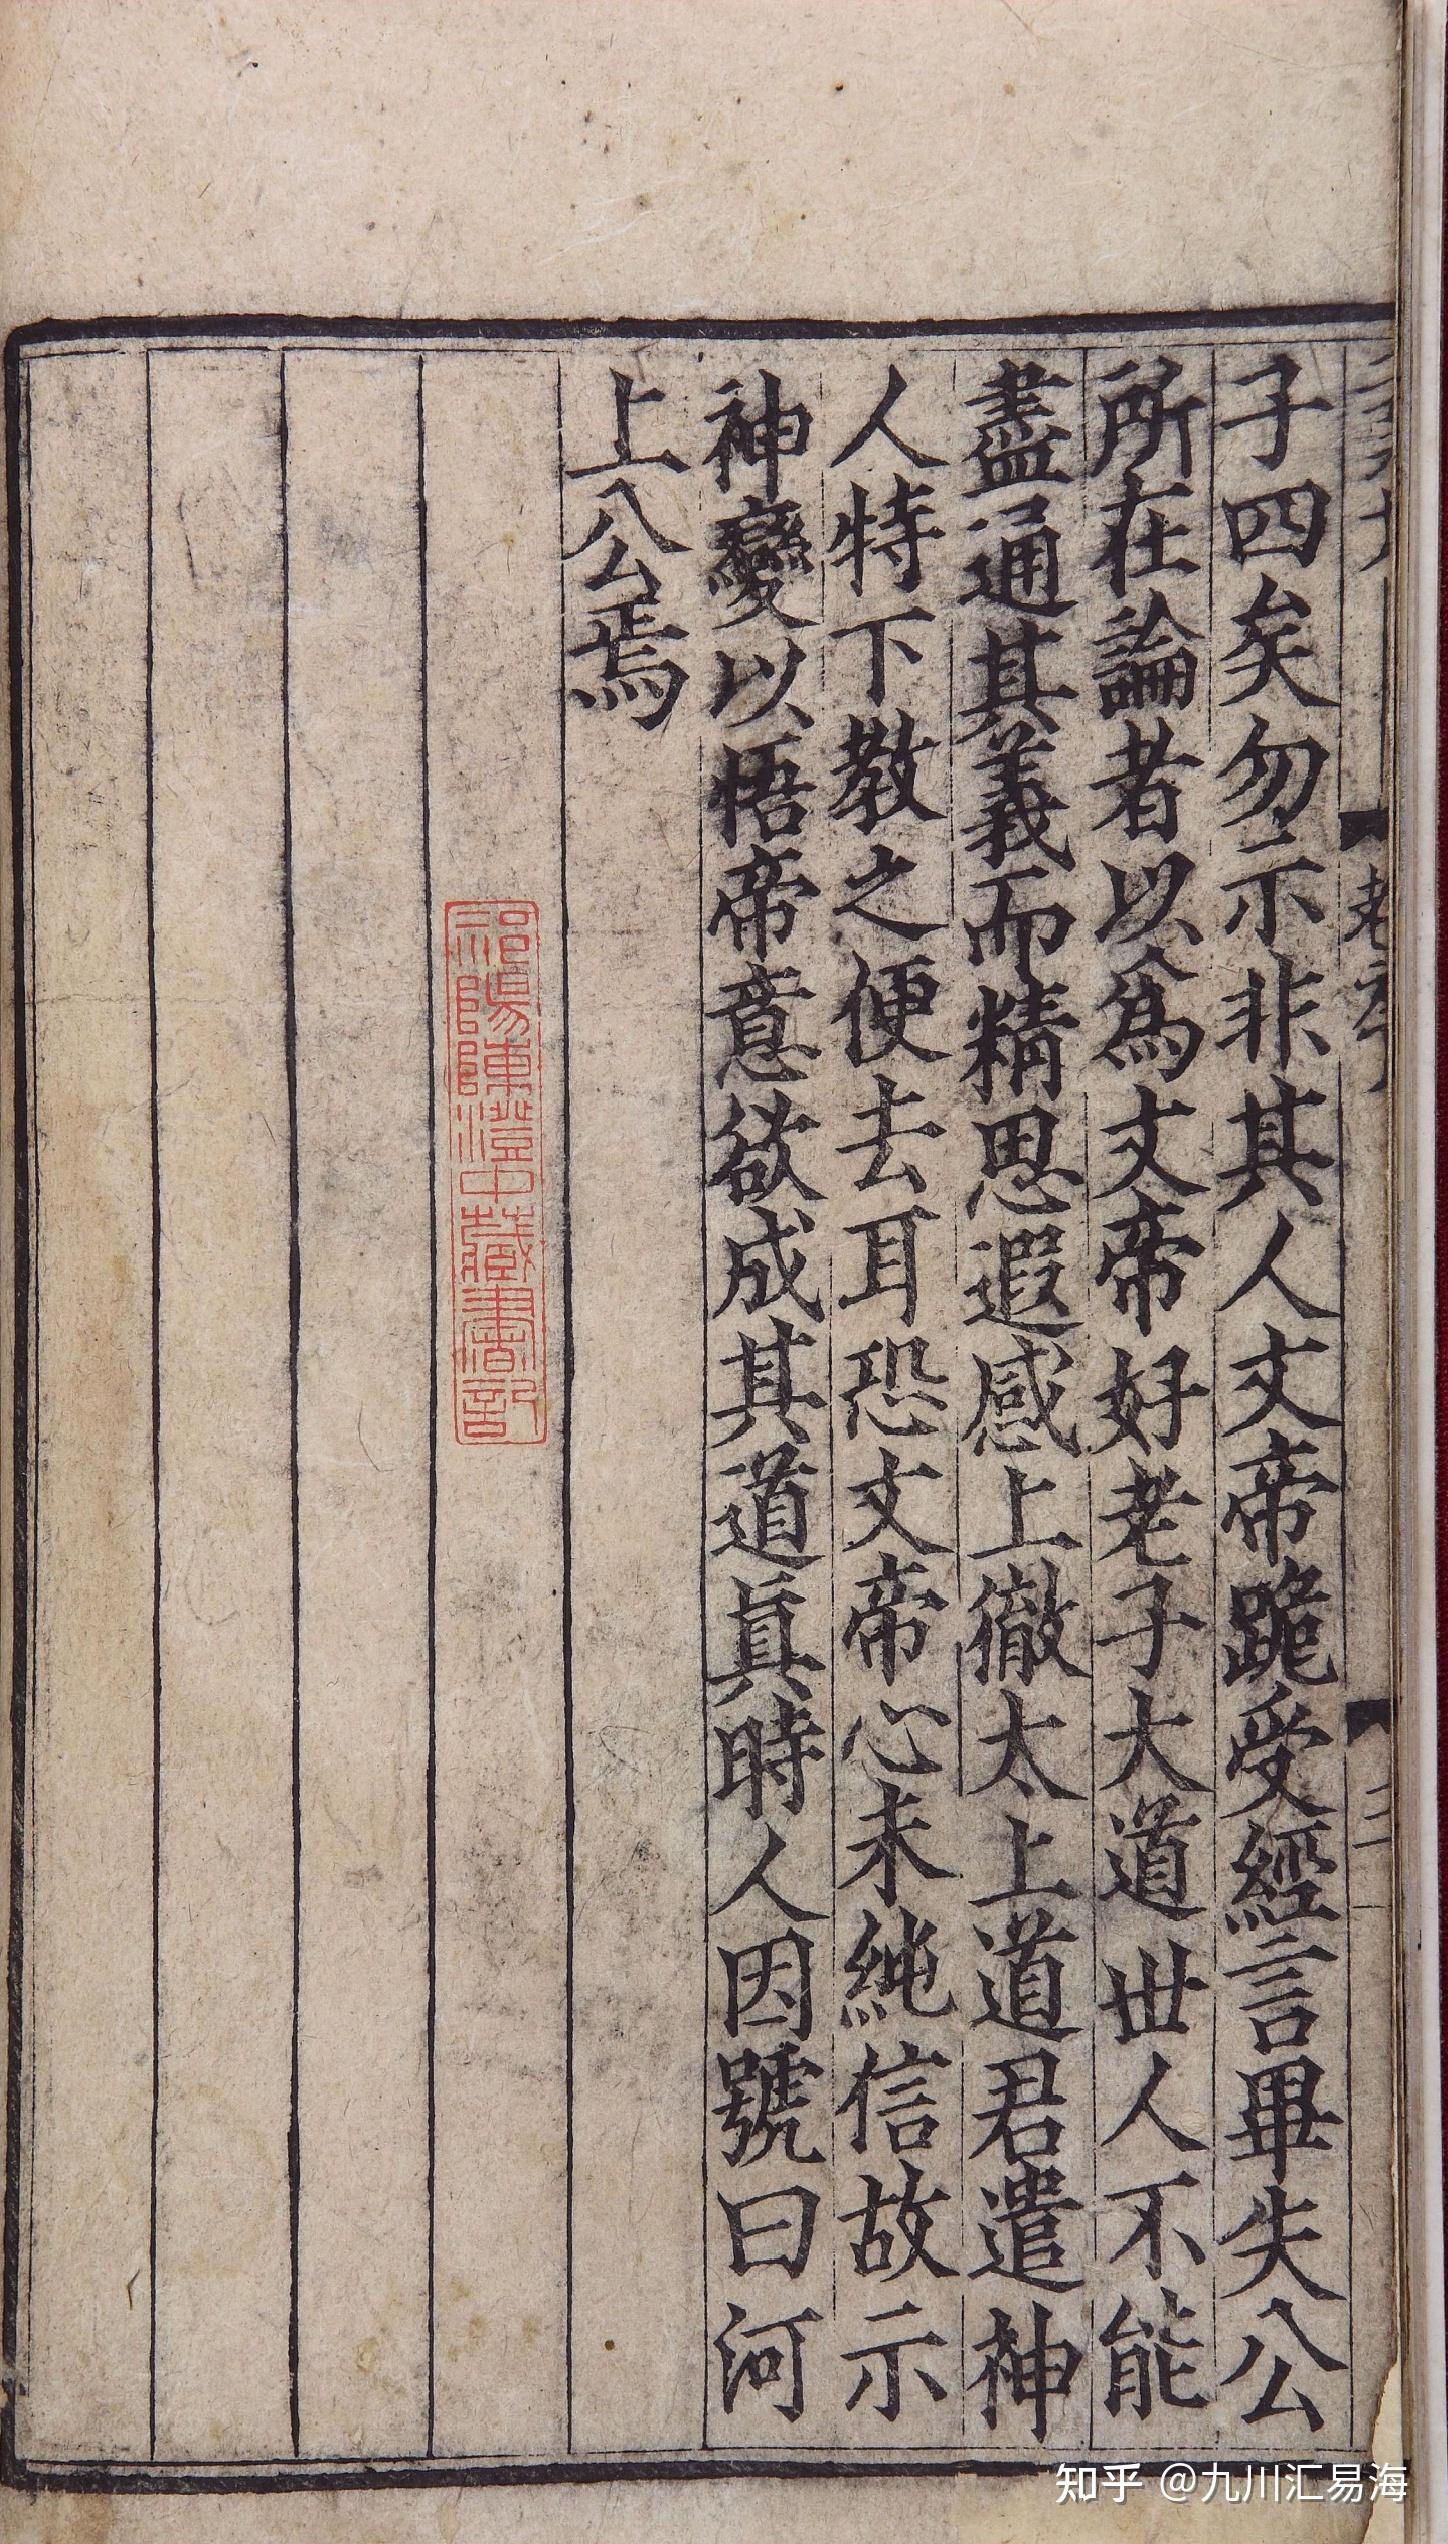 子四矣勿示非其人文帝跪受經言畢失公
所在論者以爲文帝好老子大道世人不能
盡通其義而精思遐感上徹太上道君遣神
人特下教之便去耳恐文帝心未純信故示
神變以悟帝意欲成其道眞時人因號曰河
上公焉
祁陽陳澄中藏書記
知乎 @九川汇易海